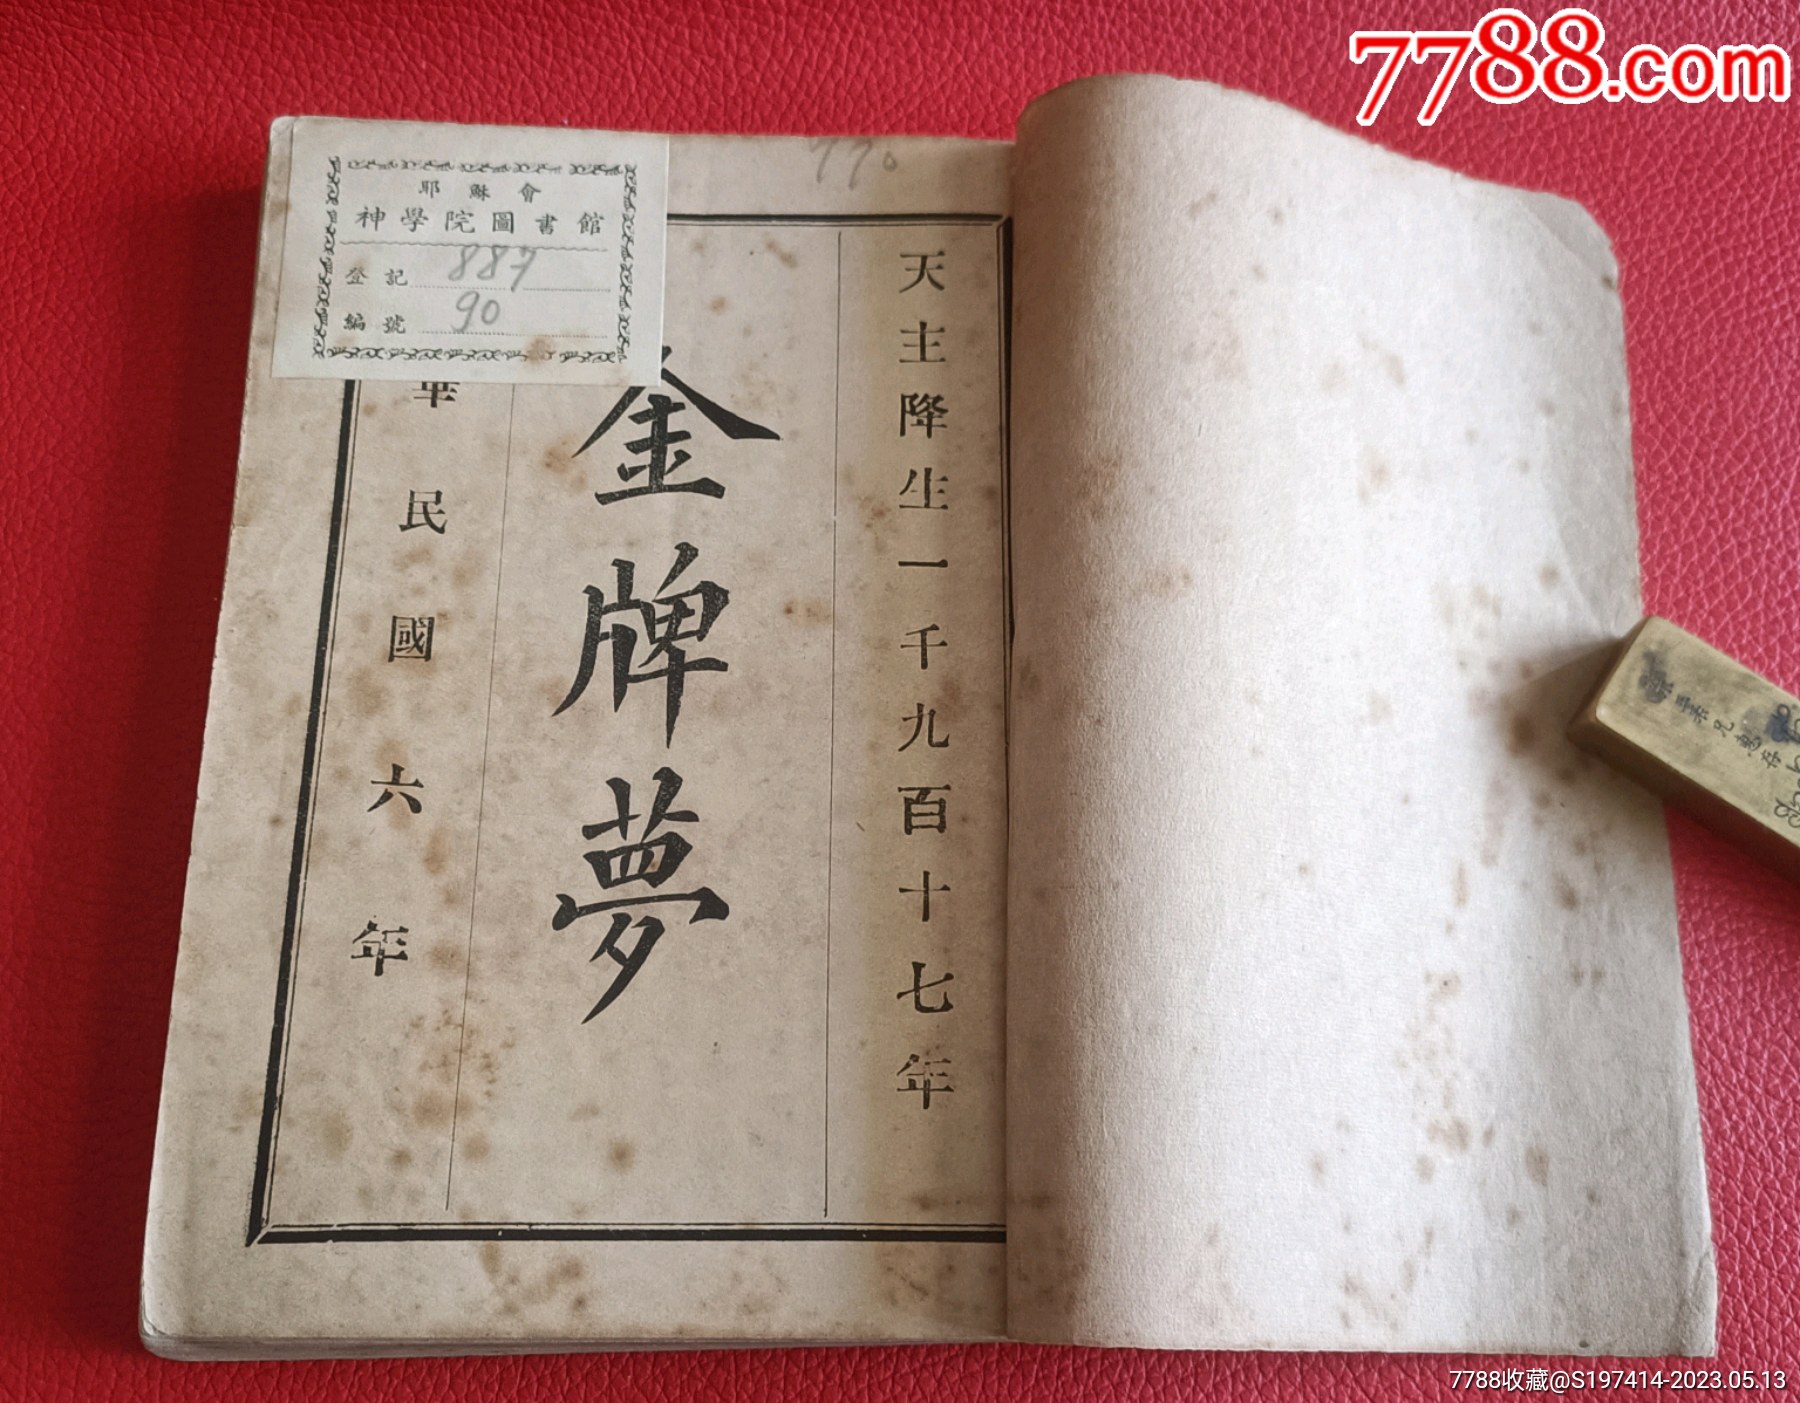 7788.com
耶穌會
神學院圖書館
登記 887
編號 90
770
天主降生一千九百十七年
金牌夢
華民國六年
7788收藏@S197414-2023.05.13